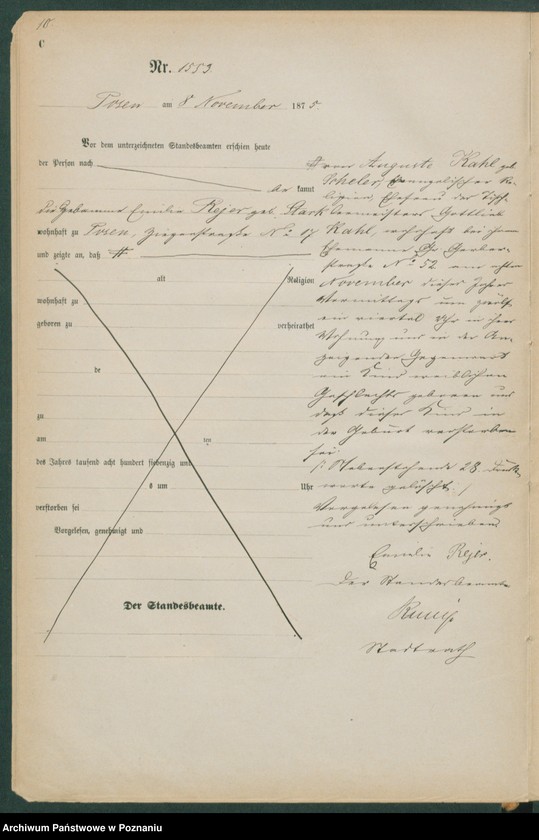 10
C
Nr. 1553.
Posen am 8 November 1875
Vor dem unterzeichneten Standesbeamten erschien heute
der Person nach
be kannt
die Hebamme Emilie Rejer geb. Stark
wohnhaft zu Posen, No 17
und zeigte an, daß
alt Religion
wohnhaft zu
geboren zu verheirathet
de
zu
am ten
des Jahres tausend acht hundert siebenzig und
s um Uhr
verstorben sei
Vorgelesen, genehmigt und
Der Standesbeamte.
von Auguste Kahl geb.
Scheler, evangelischer Re-
ligion, Ehefrau des Tisch-
lermeisters Gottlieb
Kahl, wohnhaft bei ihrem
Ehemanne Gr. Gerber-
straße No 52 am achten
November dieses Jahres
Vormittags um zwölf
ein viertel Uhr in ihrer
Wohnung und in der An-
zeigenden Gegenwart
ein Kind weiblichen
Geschlechts geboren und
daß dieses Kind in
der Geburt verstorben
sei.
Nebenstehende 28 Druck-
worte gelöscht.
Vorgelesen genehmigt
und unterschrieben
Emilie Rejer.
Der Standesbeamte
Stadtrath
Archiwum Państwowe w Poznaniu